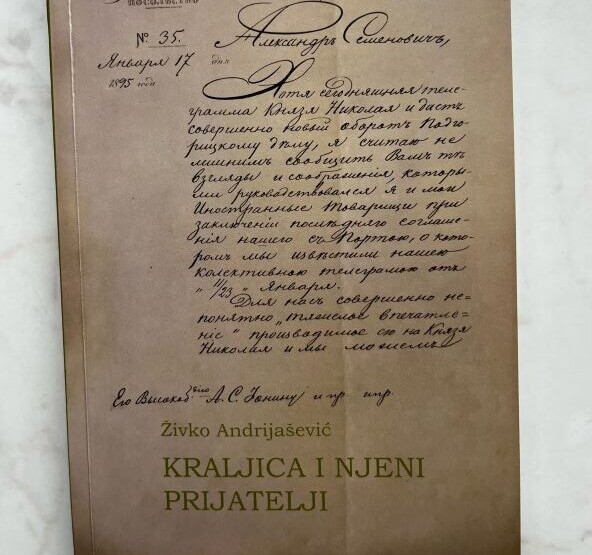 № 35.
Александръ Семеновичъ,
Января 17 дня
1895 года
Хотя сегодняшняя теле-
грамма Князя Николая и дастъ
совершенно новый оборотъ Подго-
рицкому дѣлу, я считаю не
лишнимъ сообщить Вамъ тѣ
взгляды и соображенія, которы-
ми руководствовался я и мои
Иностранные товарищи при
заключеніи послѣдняго соглаше-
нія нашего съ Портою, о кото-
ромъ мы извѣстили нашею
колективною телеграмою отъ
" 11/23 " Января.
Для насъ совершенно не-
понятно „тяжелое впечатле-
ніе" производимое ею на Князя
Николая и мы можемъ
Его Высокоб. А. С. Іонину и пр. и пр.
Živko Andrijašević
KRALJICA I NJENI
PRIJATELJI